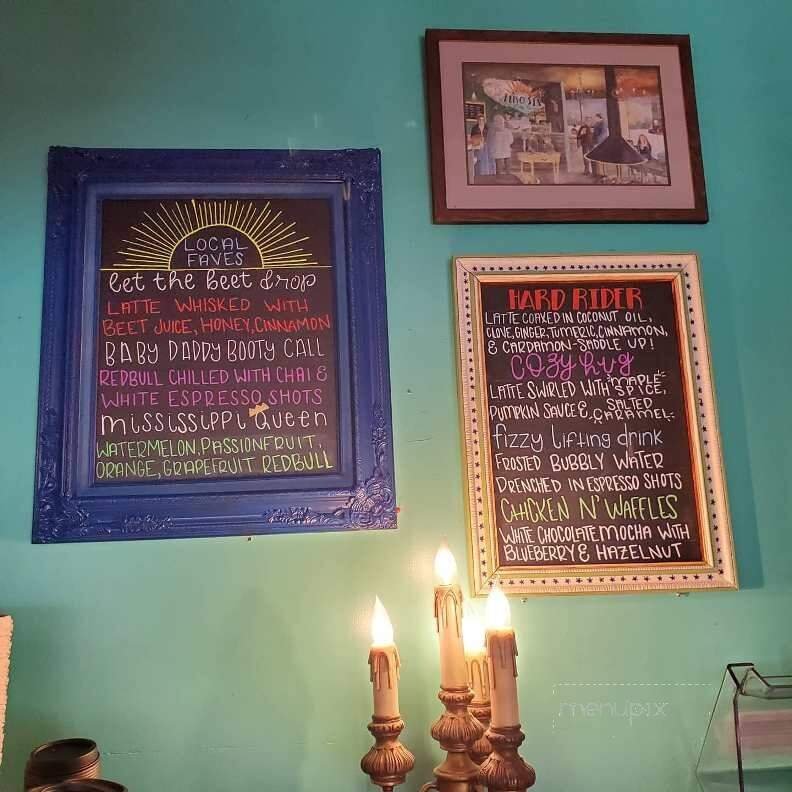 LOCAL
FAVES
let the beet drop
LATTE WHISKED WITH
BEET JUICE, HONEY, CINNAMON
BABY DADDY BOOTY CALL
REDBULL CHILLED WITH CHAI &
WHITE ESPRESSO SHOTS
mississippi Queen
WATERMELON, PASSIONFRUIT,
ORANGE, GRAPEFRUIT REDBULL
HARD RIDER
LATTE COAXED IN COCONUT OIL,
CLOVE, GINGER, TUMERIC, CINNAMON,
& CARDAMON-SADDLE UP!
COZY hug
LATTE SWIRLED WITH MAPLE SPICE,
PUMPKIN SAUCE & SALTED CARAMEL
fizzy lifting drink
FROSTED BUBBLY WATER
DRENCHED IN ESPRESSO SHOTS
CHICKEN N' WAFFLES
WHITE CHOCOLATE MOCHA WITH
BLUEBERRY & HAZELNUT
menupix